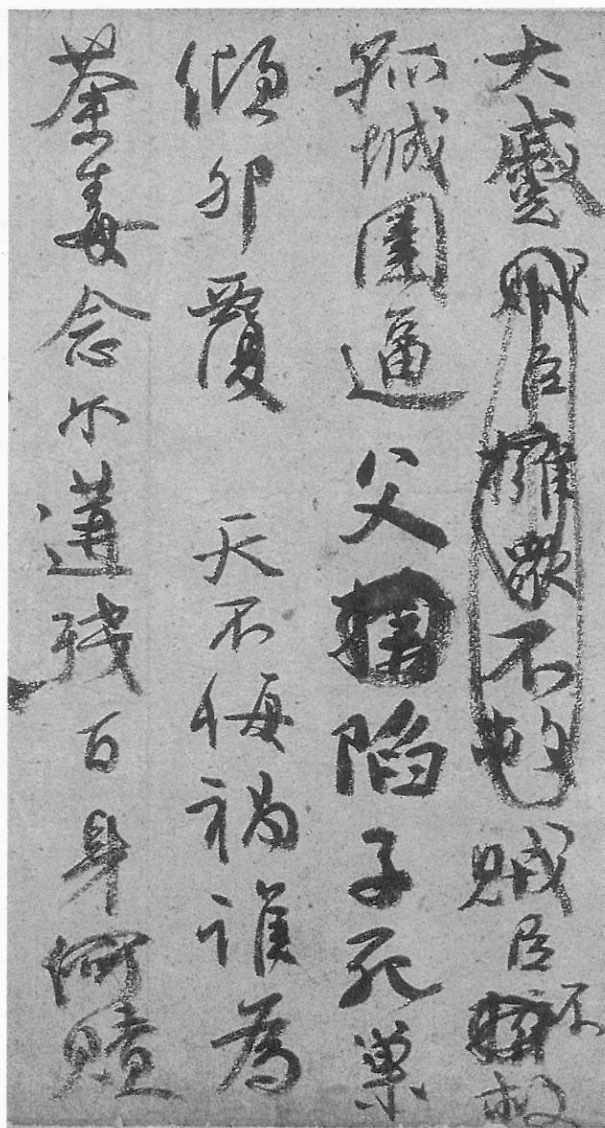 大蹙賊臣擁衆不救賊臣不救
孤城圍逼父陷子死巢
傾卵覆 天不悔禍誰為
荼毒念尔遘殘百身何贖